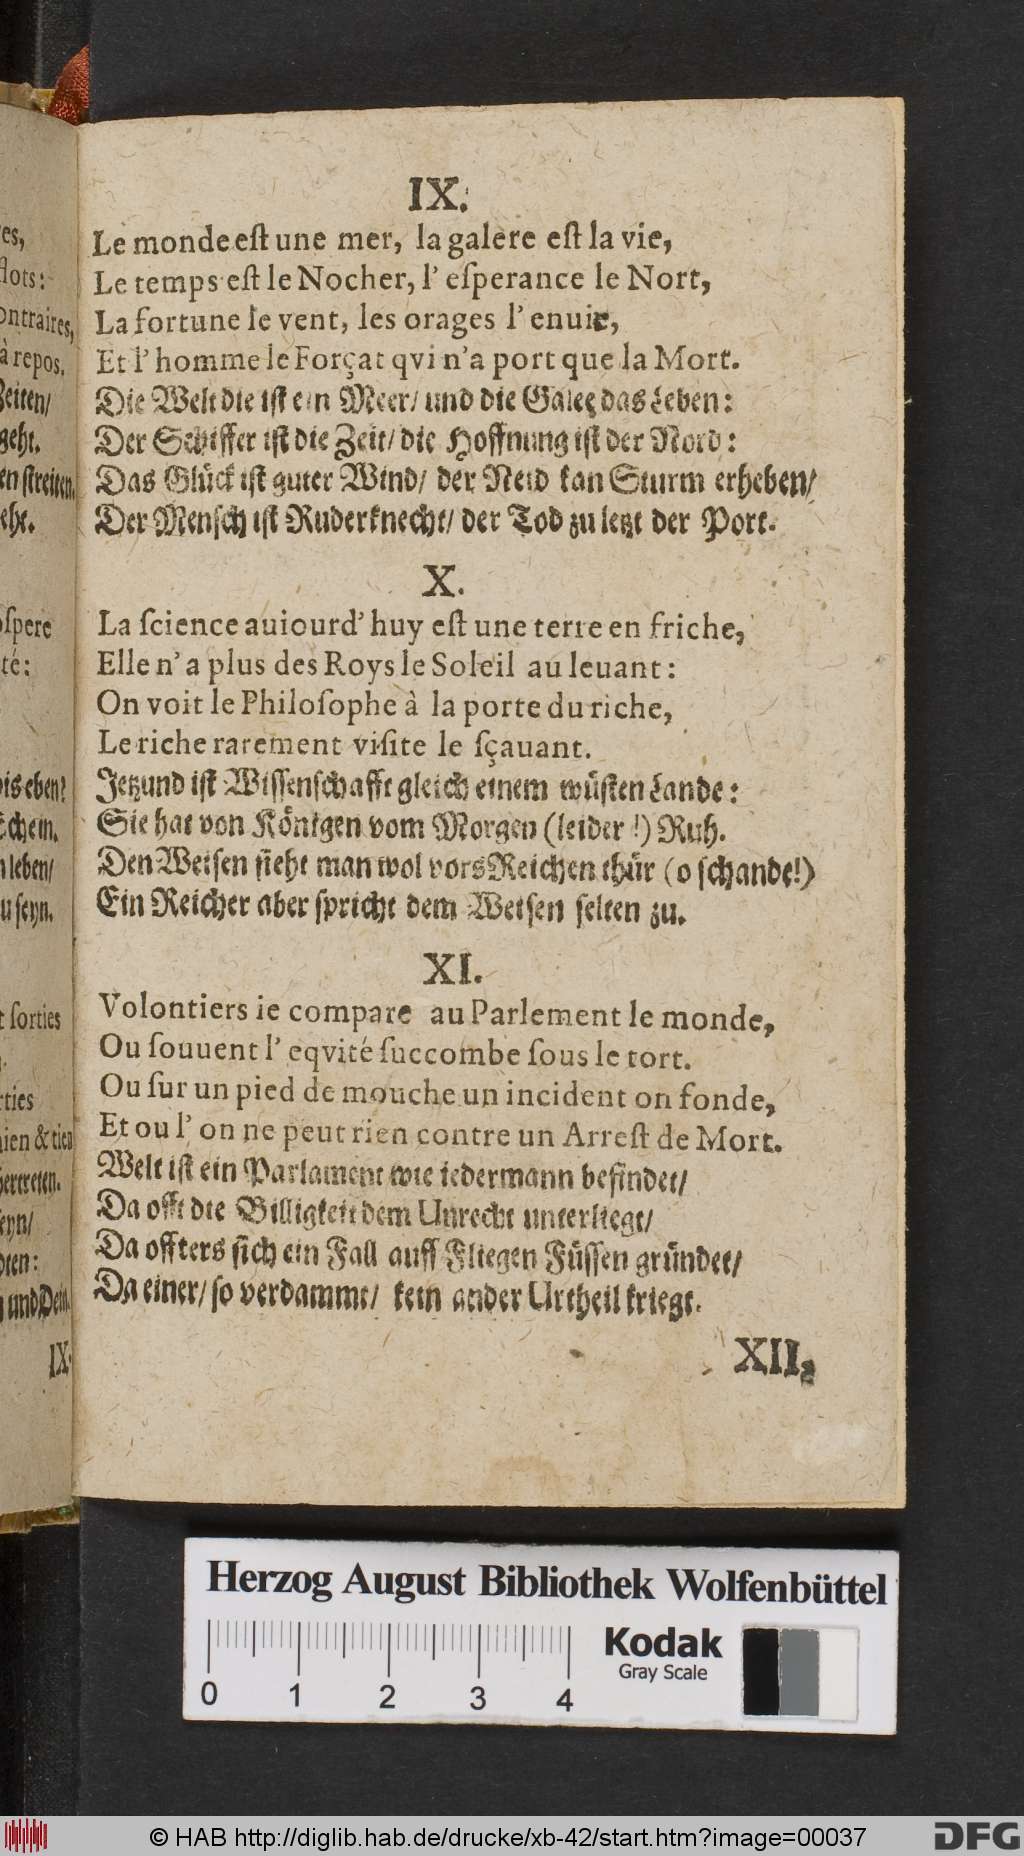 es,
flots:
ontraires,
à repos.
Zeiten/
geht.
en streiten.
eht.
ospere
té:
Schein.
n leben/
u seyn.
t sorties
rties
ien & tien
hertreten.
eyn/
und Pein.
IX.
IX.
Le monde eſt une mer, la galere eſt la vie,
Le temps eſt le Nocher, l' eſperance le Nort,
La fortune le vent, les orages l' enuie,
Et l' homme le Forçat qvi n'a port que la Mort.
Die Welt die iſt ein Meer/ und die Galee das Leben:
Der Schiffer iſt die Zeit/ die Hoffnung iſt der Nord:
Das Glück iſt guter Wind/ der Neid kan Sturm erheben/
Der Menſch iſt Ruderknecht/ der Tod zu letzt der Port.
X.
La ſcience auiourd' huy eſt une terre en friche,
Elle n' a plus des Roys le Soleil au leuant:
On voit le Philoſophe à la porte du riche,
Le riche rarement viſite le ſçauant.
Jetzund iſt Wiſſenſchafft gleich einem wüſten Lande:
Sie hat von Königen vom Morgen (leider!) Ruh.
Den Weiſen ſieht man wol vors Reichen thür (o ſchande!)
Ein Reicher aber ſpricht dem Weiſen ſelten zu.
XI.
Volontiers ie compare au Parlement le monde,
Ou ſouuent l' eqvité ſuccombe ſous le tort.
Ou ſur un pied de mouche un incident on fonde,
Et ou l' on ne peut rien contre un Arreſt de Mort.
Welt iſt ein Parlament wie iedermann befindet/
Da offt die Billigkeit dem Unrecht unterliegt/
Da offters ſich ein Fall auff Fliegen Füſſen gründet/
Da einer/ ſo verdammt/ kein ander Urtheil kriegt.
XII.
Herzog August Bibliothek Wolfenbüttel
0 1 2 3 4
Kodak
Gray Scale
© HAB http://diglib.hab.de/drucke/xb-42/start.htm?image=00037
DFG